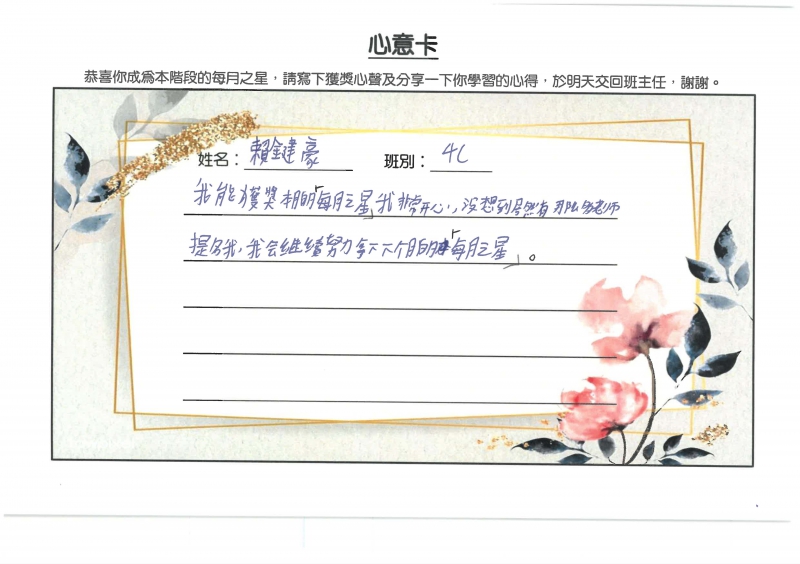 心意卡
恭喜你成為本階段的每月之星，請寫下獲獎心聲及分享一下你學習的心得，於明天交回班主任，謝謝。
姓名：賴鍵豪 班別：4C
我能獲獎本期「每月之星」我非常开心，没想到居然有 老师
提名我，我会继續努力拿下下个月的「每月之星」。